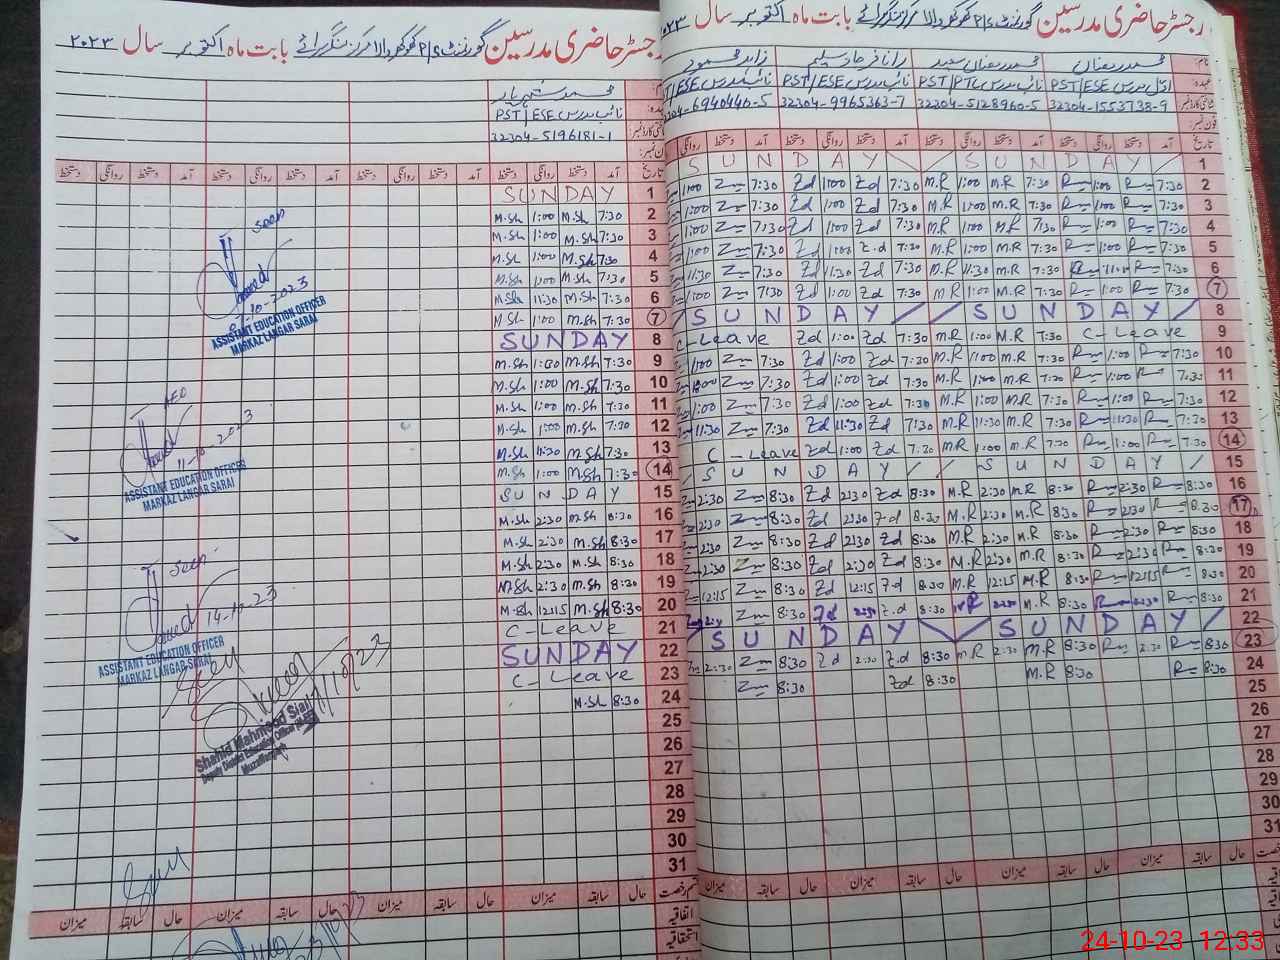 رجسٹر حاضری مدرسین گورنمنٹ P/S کھوکھر والا مرکز لنگر سرائے بابت ماہ اکتوبر سال ۲۰۲۳
محمد شہریار
نائب مدرس PST/ESE
32304-5196181-1
تاریخ آمد دستخط روانگی دستخط آمد دستخط روانگی دستخط آمد دستخط روانگی دستخط آمد دستخط روانگی دستخط
SUNDAY 1
M.Sh 1:00 M.Sh 7:30 2
M.Sh 1:00 M.Sh 7:30 3
M.Sh 1:00 M.Sh 7:30 4
M.Sh 1:00 M.Sh 7:30 5
M.Sh 11:30 M.Sh 7:30 6
M.Sh 1:00 M.Sh 7:30 7
SUNDAY 8
M.Sh 1:00 M.Sh 7:30 9
M.Sh 1:00 M.Sh 7:30 10
M.Sh 1:00 M.Sh 7:30 11
M.Sh 1:00 M.Sh 7:30 12
M.Sh 11:30 M.Sh 7:30 13
M.Sh 1:00 M.Sh 7:30 14
SUNDAY 15
M.Sh 2:30 M.Sh 8:30 16
M.Sh 2:30 M.Sh 8:30 17
M.Sh 2:30 M.Sh 8:30 18
M.Sh 2:30 M.Sh 8:30 19
M.Sh 12:15 M.Sh 8:30 20
C-Leave 21
SUNDAY 22
C-Leave 23
M.Sh 8:30 24
25
26
27
28
29
30
31
seen
07-10-2023
ASSISTANT EDUCATION OFFICER
MARKAZ LANGAR SARAI
AEO
11-10-2023
ASSISTANT EDUCATION OFFICER
MARKAZ LANGAR SARAI
seen
14-10-23
ASSISTANT EDUCATION OFFICER
MARKAZ LANGAR SARAI
Shahid Mahmood Sial
Deputy District Education Officer
Muzaffargarh
حال سابقہ میزان حال سابقہ میزان حال سابقہ میزان حال سابقہ میزان
اتفاقیہ
استحقاقیہ
رجسٹر حاضری مدرسین گورنمنٹ P/S کھوکھر والا مرکز لنگر سرائے بابت ماہ اکتوبر سال
محمد رمضان محمد رمضان سعید رانا فرحاد سلیم زاہد محمود
PST/ESE نائب مدرس PST/ESE
32304-1553738-9 32304-5128960-5 32304-9965363-7 6940440-5
آمد دستخط روانگی دستخط آمد دستخط روانگی دستخط آمد دستخط روانگی دستخط آمد دستخط روانگی
SUNDAY SUNDAY 1
1:00 Z 7:30 Zd 1:00 Zd 7:30 M.R 1:00 M.R 7:30 R 1:00 R 7:30 2
1:00 Z 7:30 Zd 1:00 Zd 7:30 M.R 1:00 M.R 7:30 R 1:00 R 7:30 3
1:00 Z 7:30 Zd 1:00 Zd 7:30 M.R 1:00 M.R 7:30 R 1:00 R 7:30 4
1:00 Z 7:30 Zd 1:00 Zd 7:30 M.R 1:00 M.R 7:30 R 1:00 R 7:30 5
11:30 Z 7:30 Zd 11:30 Zd 7:30 M.R 11:30 M.R 7:30 R 11:00 R 7:30 6
1:00 Z 7:30 Zd 1:00 Zd 7:30 M.R 1:00 M.R 7:30 R 1:00 R 7:30 7
SUNDAY SUNDAY 8
C-Leave Zd 1:00 Zd 7:30 M.R 1:00 M.R 7:30 C-Leave 9
1:00 Z 7:30 Zd 1:00 Zd 7:30 M.R 1:00 M.R 7:30 R 1:00 R 7:30 10
1:00 Z 7:30 Zd 1:00 Zd 7:30 M.R 1:00 M.R 7:30 R 1:00 R 7:30 11
1:00 Z 7:30 Zd 1:00 Zd 7:30 M.R 1:00 M.R 7:30 R 1:00 R 7:30 12
11:30 Z 7:30 Zd 11:30 Zd 7:30 M.R 11:30 M.R 7:30 R 11:30 R 7:30 13
C-Leave Zd 1:00 Zd 7:30 M.R 1:00 M.R 7:30 R 1:00 R 7:30 14
SUNDAY SUNDAY 15
2:30 Z 8:30 Zd 2:30 Zd 8:30 M.R 2:30 M.R 8:30 R 2:30 R 8:30 16
2:30 Z 8:30 Zd 2:30 Zd 8:30 M.R 2:30 M.R 8:30 R 2:30 R 8:30 17
2:30 Z 8:30 Zd 2:30 Zd 8:30 M.R 2:30 M.R 8:30 R 2:30 R 8:30 18
2:30 Z 8:30 Zd 2:30 Zd 8:30 M.R 2:30 M.R 8:30 R 2:30 R 8:30 19
12:15 Z 8:30 Zd 12:15 Zd 8:30 M.R 12:15 M.R 8:30 R 12:15 R 8:30 20
Z 8:30 Zd 2:30 Zd 8:30 M.R 2:30 M.R 8:30 R 2:30 R 8:30 21
SUNDAY SUNDAY 22
2:30 Z 8:30 Zd 2:30 Zd 8:30 M.R 2:30 M.R 8:30 R 2:30 R 8:30 23
Z 8:30 Zd 8:30 M.R 8:30 R 8:30 24
25
26
27
28
29
30
31
حال سابقہ میزان حال سابقہ میزان حال سابقہ میزان حال سابقہ میزان
24-10-23 12:33